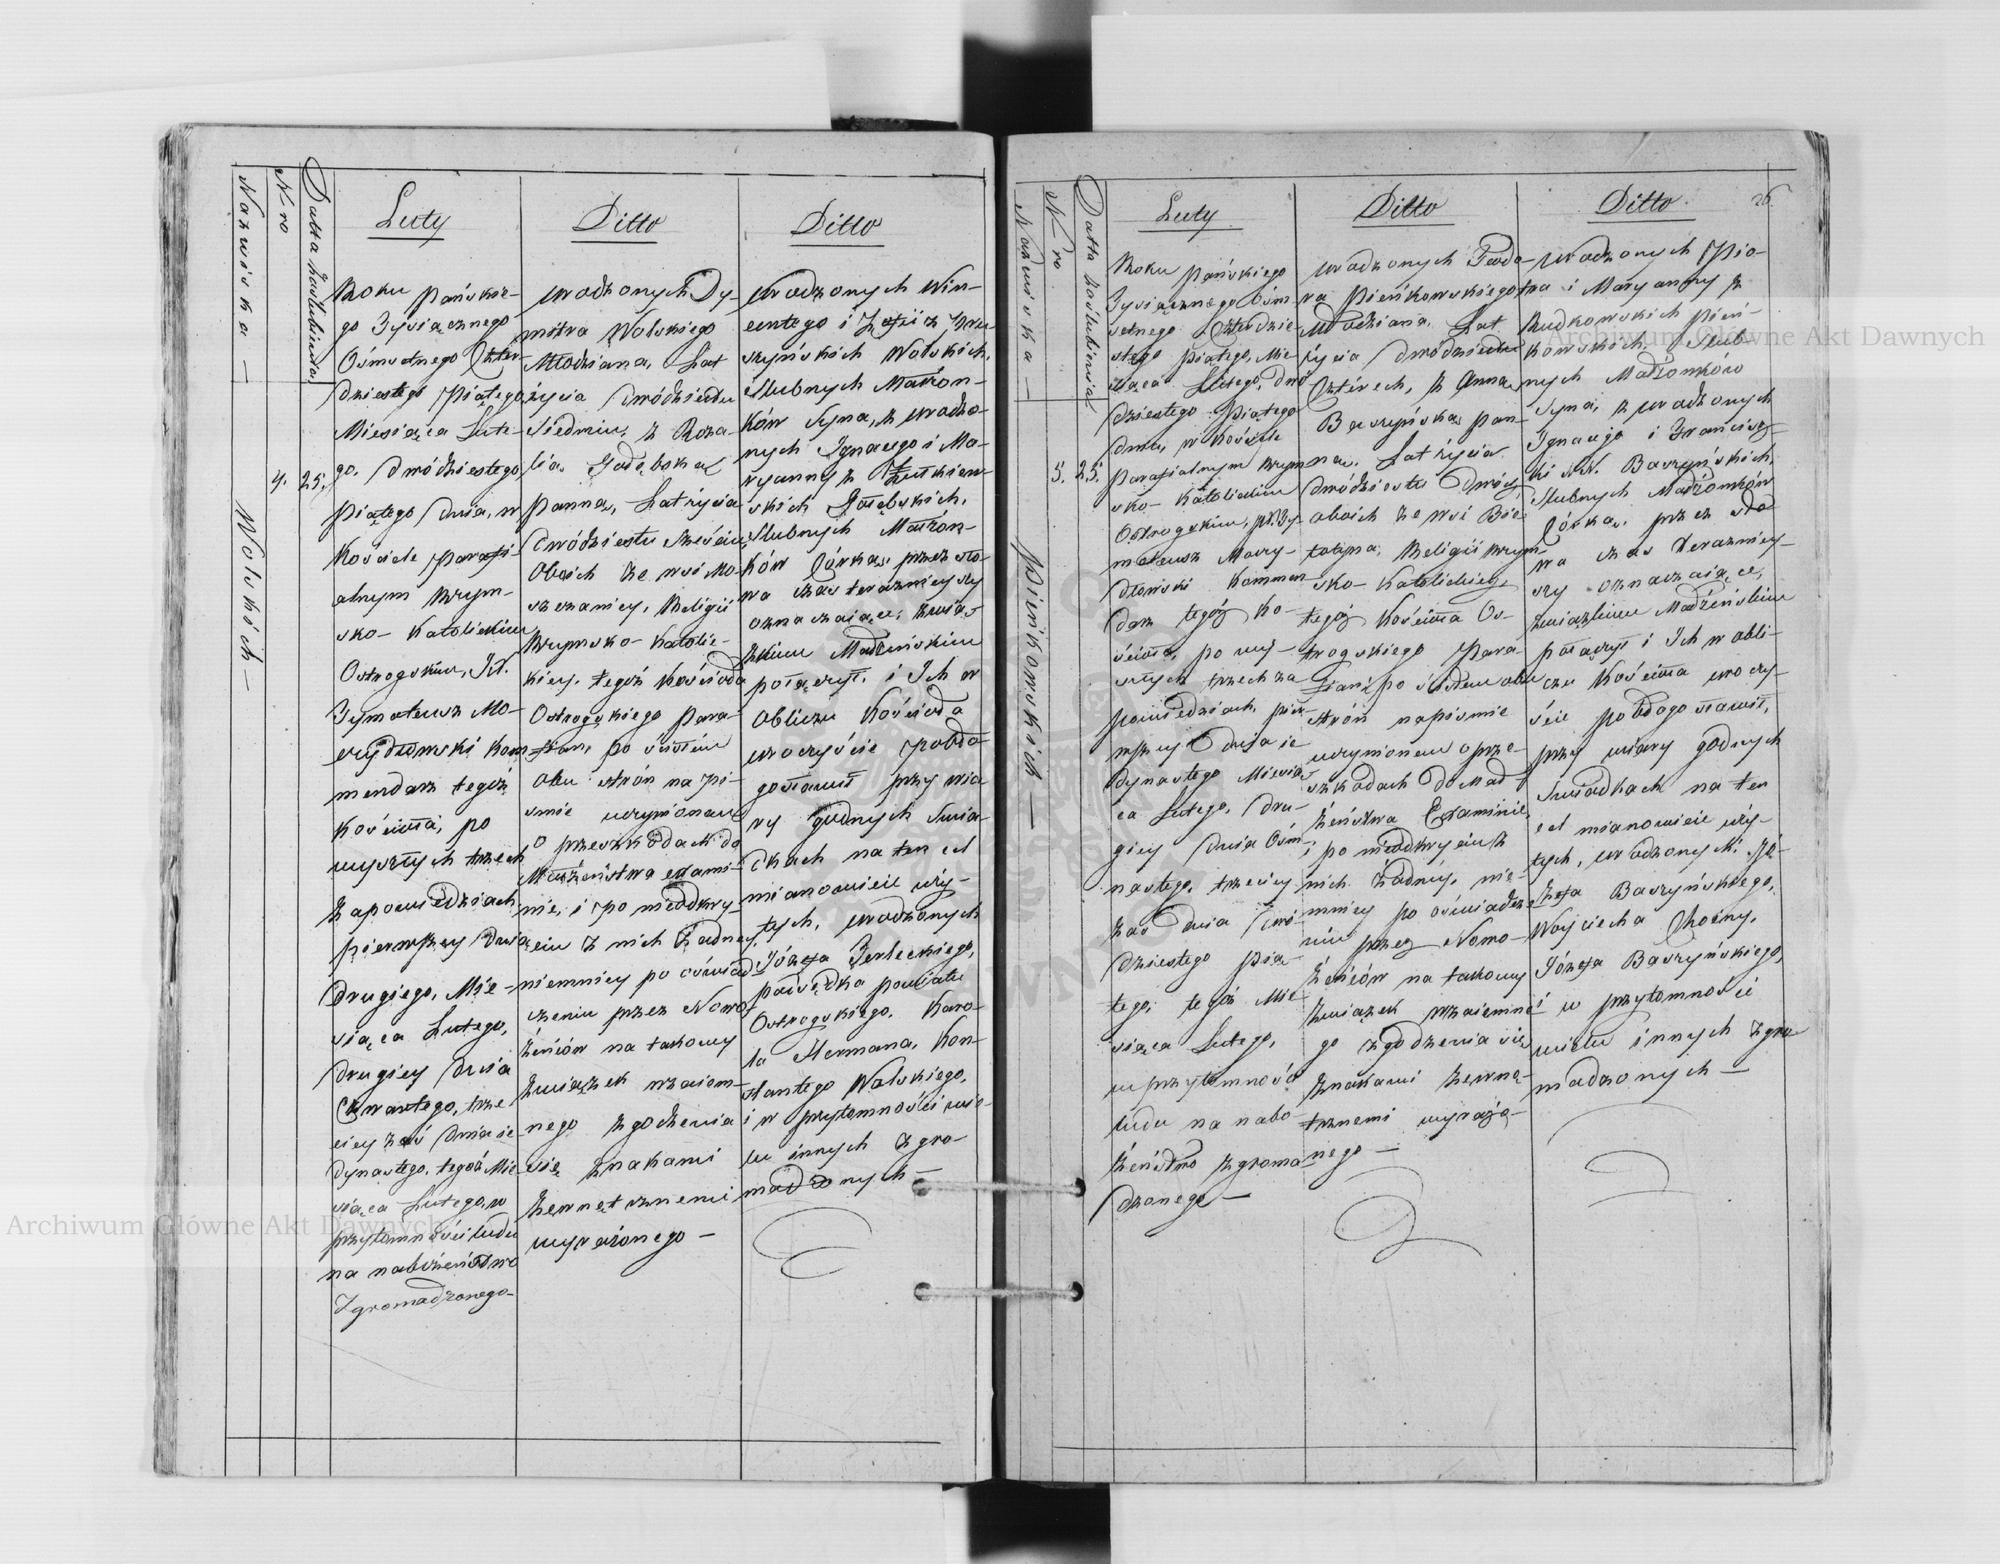 Nazwiska —
Nro
Datta Zaślubienia.
Wolskich —
4.
25.
Luty
Roku Pańskie-
go Tysiącznego
Ośmsetnego Czter-
dziestego Piątego
Miesiąca Lute-
go, dwódziestego
Piątego dnia, w
Kościele Parafi-
alnym Rzym-
sko-Katolickim
Ostrogskim, JX.
Tymoteusz Mo-
czydłowski Kom
mendarz tegoż
Kościoła, po
wyszłych trzech
Zapowiedziach,
pierwszey dnia
drugiego, Mie-
siąca Lutego,
drugiey dnia
Czwartego, trze
ciey zaś dnia ie-
dynastego, tegoż Mie
siąca Lutego, w
przytomności ludu
na nabożeństwo
Zgromadzonego-
Ditto
urodzonych Dy-
mitra Wolskiego
Młodziana, Lat
życia dwódziestu
Siedmiu, z Roza-
lią Gołębską
Panną, Lat życia
dwódziestu sześciu
Oboich ze wsi Mo-
szczanicy, Religii
Rzymsko-Katolic-
kiey, tegoż Kościoła
Ostrogskiego Para-
fian, po ścisłém
obu stron na pi-
smie uczynionem
o przeszkodach do
Małżeństwa exami-
nie, i po nieodkry-
ciu z nich żadney,
niemniey po oświad-
czeniu przez Nowo
żeńców na takowy
związek wzaiem-
nego zgodzenia
się znakami
zewnętrznemi
wyrażonego —
Ditto
Urodzonych Win-
centego i Zofii z Pru
szyńskich Wolskich,
Ślubnych Małżon-
ków syna, z urodzo-
nych Ignacego i Ma-
ryanny z Żułkiew
skich Gołębskich,
Ślubnych Małżon-
ków Córką, przez sło-
wa czas teraźnieyszy
oznaczaiące, związ-
kiem Małżeńskim
połączył, i Ich w
obliczu Kościoła
uroczyście pobło
gosławił przy wia
ry godnych Świa-
dkach na ten cel
mianowicie uży-
tych, urodzonych
Józefa Jerleckiego,
powiatu
Ostrogskiego, Karo-
la Hermana, Kon-
stantego Wolskiego,
i w przytomności wie-
lu innych zgro-
madzonych —
Nazwiska —
Nro
Datta Zaślubienia.
Pieńkowskich —
5.
25.
Luty
Roku Pańskiego
Tysiącznego Ośm-
setnego Czterdzie-
stego Piątego, Mie-
siąca Lutego, dwó
dziestego Piątego
dnia, w Kościele
Parafialnym Rzym
sko-Katolickim
Ostrogskim, JX. Ty-
moteusz Moczy-
dłowski Kommen
darz tegoż Ko-
ścioła, po wy-
szłych trzech za
powiedziach, pier
wszey dnia ie
dynastego Miesią
ca Lutego, dru-
giey dnia Ośm-
nastego, trzeciey
zaś dnia dwó
dziestego Pią-
tego, tegoż Mie
siąca Lutego,
w przytomności
ludu na nabo-
żeństwo zgroma
dzonego —
Ditto
urodzonych Teodo-
ra Pieńkowskiego
Młodziana, Lat
życia dwódziestu
Czterech, z Anną
Baszyńską Pan-
ną, Lat życia
dwódziestu dwóch
oboich ze wsi
Religii Rzym-
sko-Katolickiey,
tegoż Kościoła Os-
trogskiego Para-
fian, po ścisłem obu
strón na pismie
uczynionem o prze-
szkodach do Mał
żeństwa Examinie,
i po nieodkryciu z
nich żadnéy, nie-
mniey po oświadcze
niu przez Nowo-
żeńców na takowy
związek wzaiemne
go zgodzenia się
znakami zewnę-
trznemi wyrażo-
nego —
Ditto
26
Urodzonych Pio-
tra i Maryanny z
Rudkowskich Pień-
kowskich, Ślub-
nych Małżonków
syna, z urodzonych
Ignacego i Francisz-
ki NN. Baszyńskich,
Ślubnych Małżonków
Córką, przez sło
wa czas teraźniey-
szy oznaczaiące,
związkiem Małżeńskim
połączył i Ich w obli-
czu Kościoła uroczy-
ście pobłogosławił,
przy wiary godnych
Świadkach na ten
cel mianowicie uży-
tych, urodzonych: Jó-
zefa Baszyńskiego,
Woyciecha
Józefa Baszyńskiego,
i w przytomności
wielu innych zgro
madzonych —
Archiwum Główne Akt Dawnych
Archiwum Główne Akt Dawnych